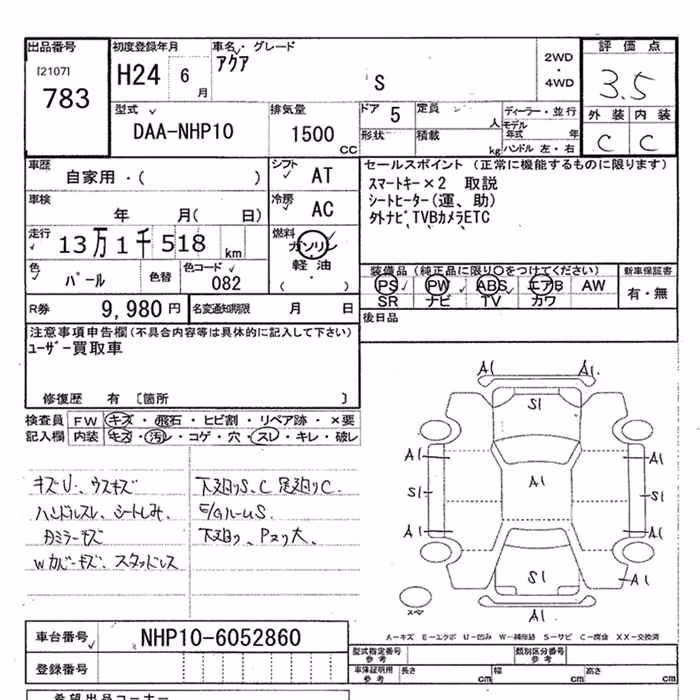 出品番号 初度登録年月 車名・グレード 評価点
[2107] アクア 2WD
783 H24 6 月 S ・ 3.5
4WD
型式 排気量 ドア 5 定員 人 ディーラー・並行 外装 内装
DAA-NHP10 1500 CC 形状 積載 kg モデル年式 年 C C
ハンドル 左・右
車歴 シフト セールスポイント (正常に機能するものに限ります)
自家用・( ) AT スマートキー×2 取説
車検 年 月( 日) 冷房 AC シートヒーター(運、助)
走行 13万1千518 km 燃料 ガソリン 外ナビ,TVBカメラETC
軽・油
( )
色 パール 色替 色コード 082 装備品 (純正品に限り〇をつけてください) 新車保証書
PS PW ABS エアB AW 有・無
R券 9,980 円 名変通知期限 月 日 SR ナビ TV カワ
注意事項申告欄(不具合内容等は具体的に記入して下さい) 後日品
ユーザー買取車
修復歴 有 [箇所 ]
検査員 FW キズ・飛石・ヒビ割・リペア跡・×要
記入欄 内装 キズ・汚レ・コゲ・穴・スレ・キレ・破レ
キズU、ウスキズ 下廻りS、C 足廻りC.
ハンドルスレ、シートしみ、 E/GルームS.
カミラーキズ 下廻り、Pスリ大、
Wカバーキズ、スタッドレス
A1 A1
S1
A1 A1
A1
S1 S1
A1 A1
S1 A1
A1
スペア
A-キズ E-エクボ U-凹み W-補修跡 S-サビ C-腐食 XX-交換済
車台番号 NHP10-6052860 型式指定番号 参考 類別区分番号 参考
登録番号 車庫証明用 参考 長さ cm 幅 cm 高さ cm
希望出品コーナー